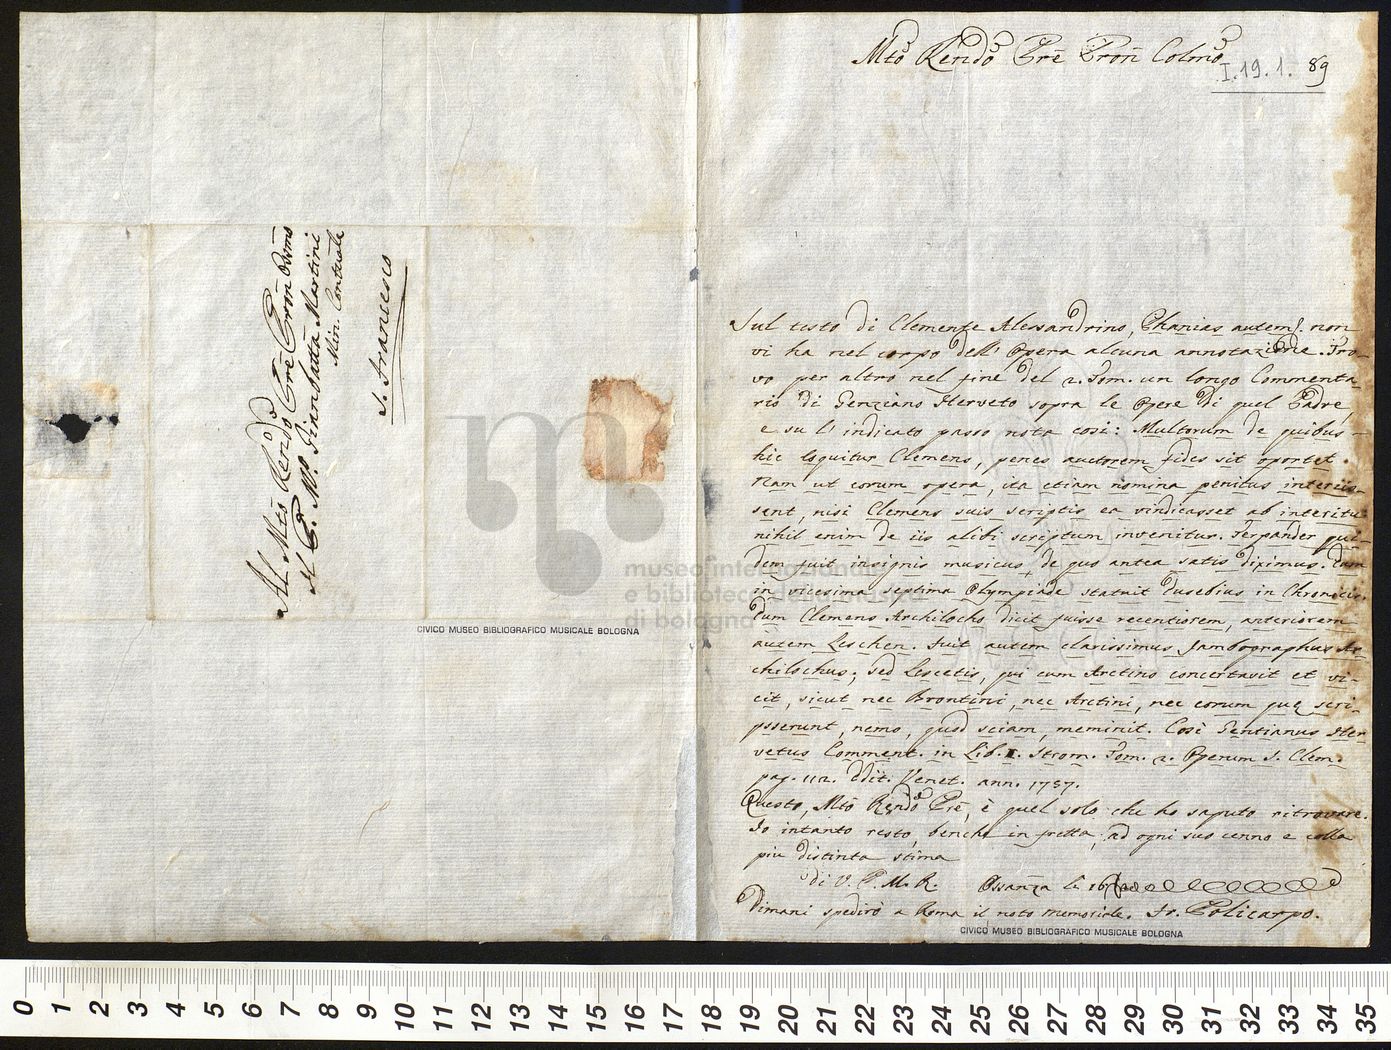 Al Mto Rendo Pre Pron Ossmo
Il P. Mro. Giambatta Martini
Min. Contuale
S. Francesco
CIVICO MUSEO BIBLIOGRAFICO MUSICALE BOLOGNA
museo internazionale
e biblioteca della musica
di bologna
Mto Rendo Pre Pron Colmo
I.19.1. 89
Sul testo di Clemente Alessandrino, Phanias autem. non
vi ha nel corpo dell' Opera alcuna annotazione. Tro-
vo per altro nel fine del 2. Tom. un longo Commenta-
rio di Genziano Herveto sopra le Opere di quel Padre,
e su l' indicato passo nota così: Multorum de quibus
hic loquitur Clemens, penes auctorem fides sit oportet.
Nam ut eorum opera, ita etiam nomina penitus interiis-
sent, nisi Clemens suis scriptis ea vindicasset ab interitu
nihil enim de iis alibi scriptum invenitur. Terpander qui-
dem fuit insignis musicus, de quo antea satis diximus. Eum
in vicesima septima Olympiade statuit Eusebius in Chronicis.
Eum Clemens Archilocho dicit fuisse recentiorem, anteriorem
autem Leschen. Fuit autem clarissimus Jambographus Ar-
chilochus; sed Lescetis, qui cum Arctino concertavit et vi-
cit, sicut nec Brontini, nec Arctini, nec eorum quę scri-
psserunt, nemo, quod sciam, meminit. Così Gentianus Her-
vetus Comment. in Lib. I. Strom. Tom. 2. Operum S. Clem.
pag. 112. Edit. Venet. ann. 1757.
Questo, Mto Rendo Pre, è quel solo che ho saputo ritrovare.
Io intanto resto, benche in fretta, ad ogni suo cenno e colla
piu distinta stima
di V. P. M. R. Osvanza li 16
Dimani spedirò a Roma il noto memoriale. Fr. Policarpo.
CIVICO MUSEO BIBLIOGRAFICO MUSICALE BOLOGNA
0 1 2 3 4 5 6 7 8 9 10 11 12 13 14 15 16 17 18 19 20 21 22 23 24 25 26 27 28 29 30 31 32 33 34 35